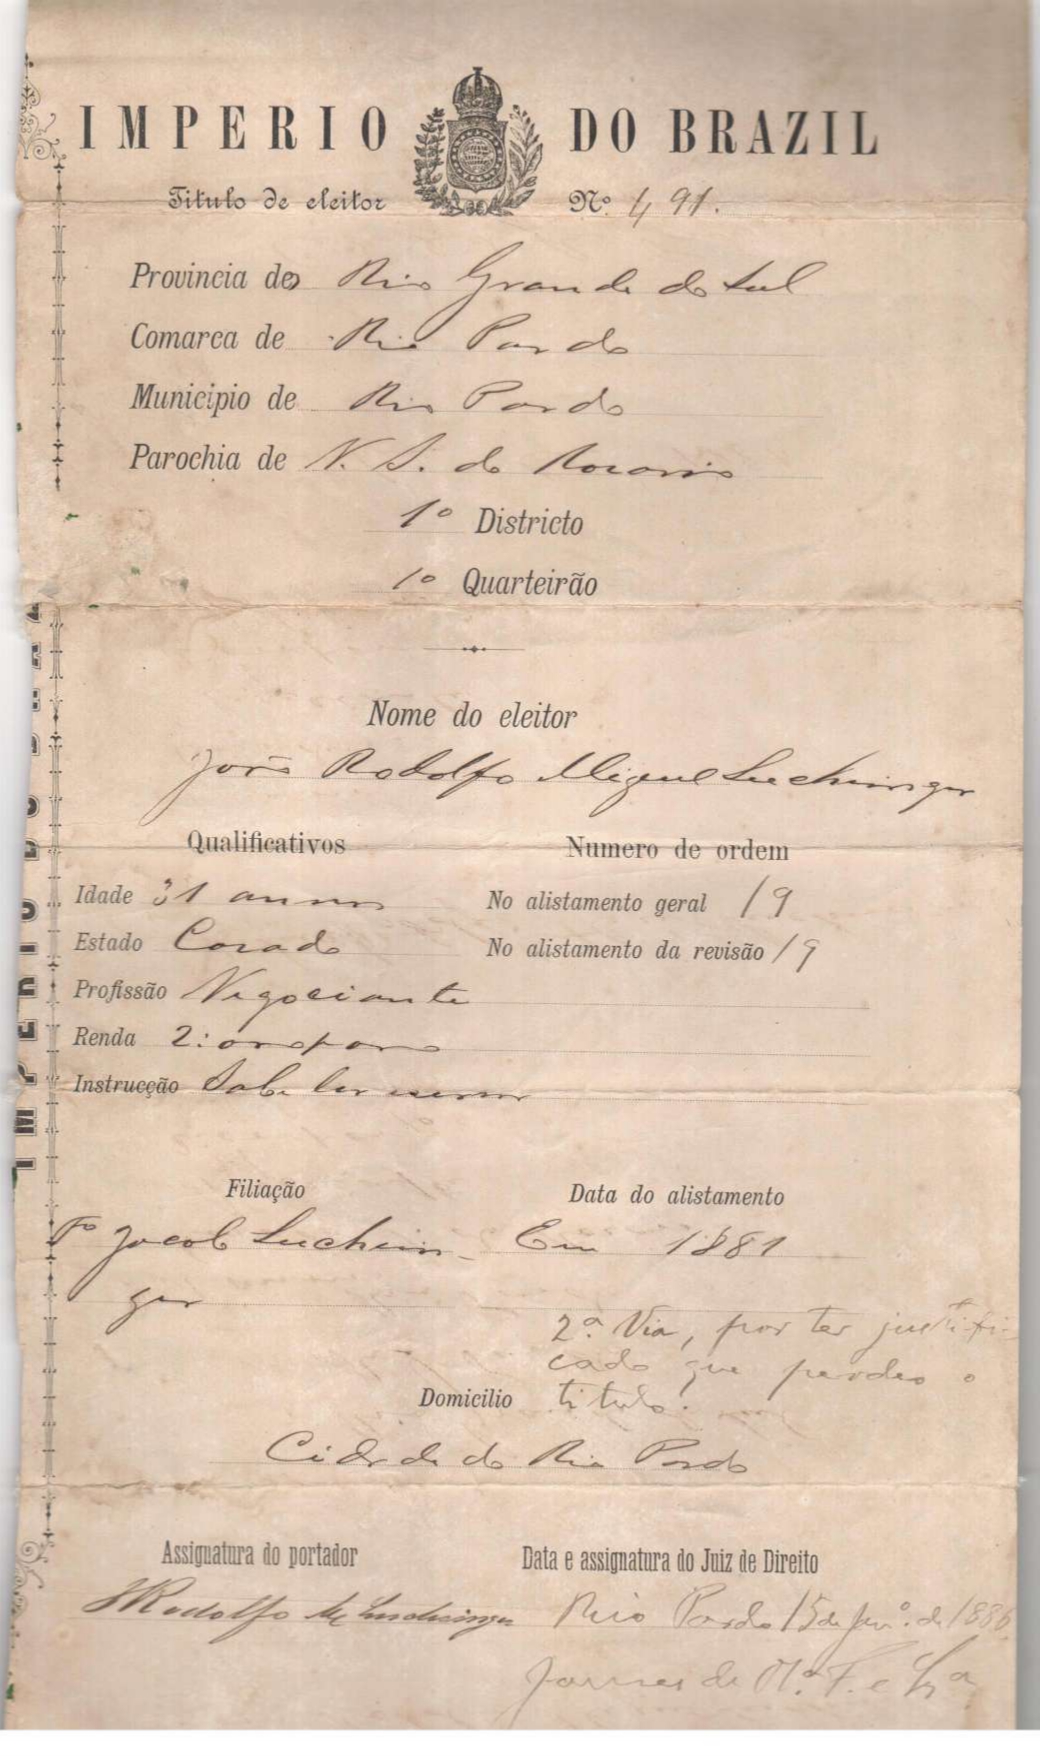 IMPERIO DO BRAZIL
Titulo de eleitor Nº 491.
Provincia do Rio Grande do Sul
Comarca de Rio Pardo
Municipio de Rio Pardo
Parochia de N. S. do Rosario
1º Districto
1º Quarteirão
Nome do eleitor
João Rodolfo Miguel Luchsinger
Qualificativos
Numero de ordem
Idade 31 annos
No alistamento geral 19
Estado Casado
No alistamento da revisão 19
Profissão Negociante
Renda
Instrucção Sabe ler escrever
Filiação
Data do alistamento
Fº Jacob Luchsin-
ger
Em 1881
2ª Via, por ter justifi-
cado que perdeo o
titulo.
Domicilio
Cidade do Rio Pardo
Assignatura do portador
Data e assignatura do Juiz de Direito
JRodolfo M Luchsinger
Rio Pardo 15 de Janº. de 1886
IMPERIO DO BRAZ